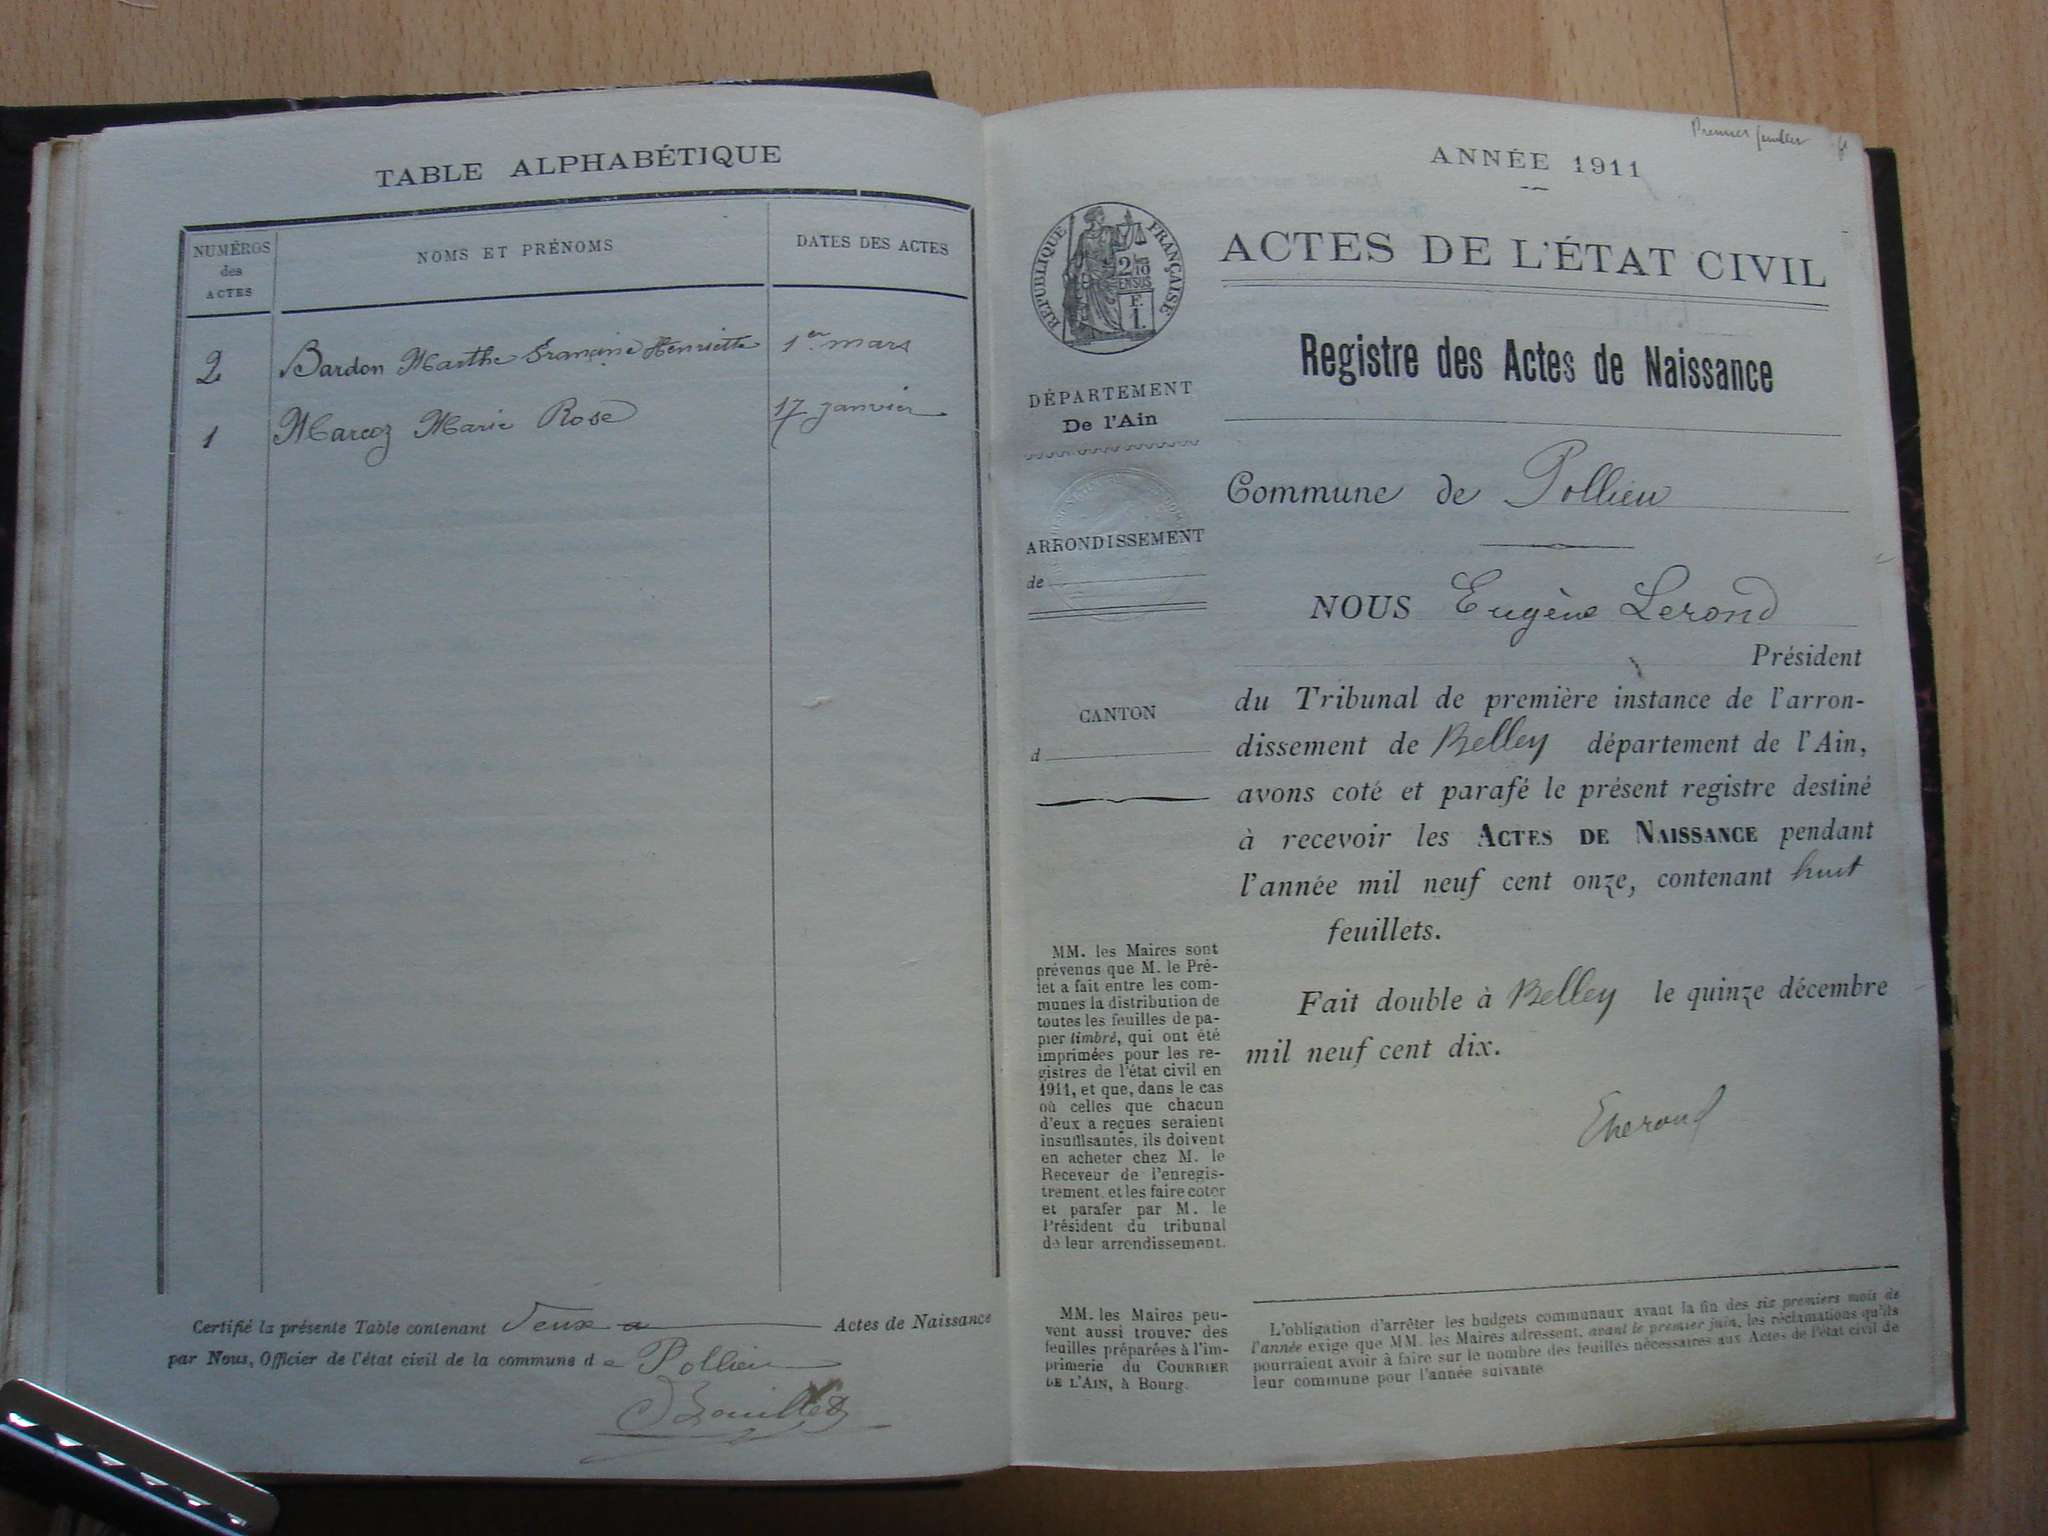 TABLE ALPHABÉTIQUE
NUMÉROS
des
ACTES
NOMS ET PRÉNOMS
DATES DES ACTES
2 Bardon Marthe Francine Henriette 1er mars
1 Marcoz Marie Rose 17 janvier
Certifié la présente Table contenant deux Actes de Naissance
par Nous, Officier de l'état civil de la commune de Pollieu
Premier feuillet
ANNÉE 1911
RÉPUBLIQUE FRANÇAISE
2/10
EN SUS
F.
1.
ACTES DE L'ÉTAT CIVIL
Registre des Actes de Naissance
DÉPARTEMENT
De l'Ain
Commune de Pollieu
ARRONDISSEMENT
de
NOUS Eugène Lerond
Président
du Tribunal de première instance de l'arron-
dissement de Belley département de l'Ain,
avons coté et parafé le présent registre destiné
à recevoir les ACTES DE NAISSANCE pendant
l'année mil neuf cent onze, contenant huit
feuillets.
Fait double à Belley le quinze décembre
mil neuf cent dix.
ELerond
CANTON
d
MM. les Maires sont
prévenus que M. le Pré-
fet a fait entre les com-
munes la distribution de
toutes les feuilles de pa-
pier timbré, qui ont été
imprimées pour les re-
gistres de l'état civil en
1911, et que, dans le cas
où celles que chacun
d'eux a reçues seraient
insuffisantes, ils doivent
en acheter chez M. le
Receveur de l'enregis-
trement, et les faire coter
et parafer par M. le
Président du tribunal
de leur arrondissement.
MM. les Maires peu-
vent aussi trouver des
feuilles préparées à l'im-
primerie du COURRIER
DE L'AIN, à Bourg.
L'obligation d'arrêter les budgets communaux avant la fin des six premiers mois de
l'année exige que MM. les Maires adressent, avant le premier juin, les réclamations qu'ils
pourraient avoir à faire sur le nombre des feuilles nécessaires aux Actes de l'état civil de
leur commune pour l'année suivante